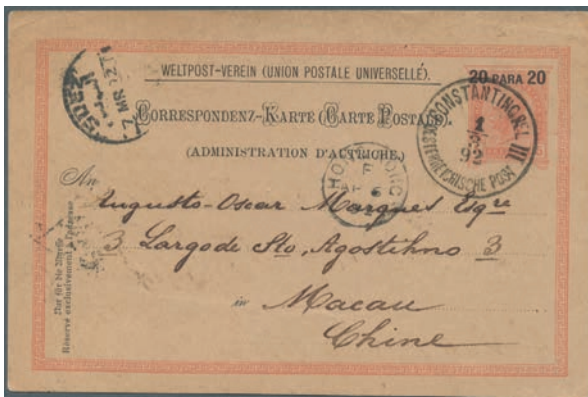 WELTPOST-VEREIN (UNION POSTALE UNIVERSELLE).
20 PARA 20
CORRESPONDENZ-KARTE (CARTE POSTALE).
(ADMINISTRATION D'AUTRICHE.)
CONSTANTINOPEL III
1
3
92
OESTERREICHISCHE POST
SUEZ
MR 92
HONG KONG
F
AP 6
An
Augusto-Oscar Marques Esqre
3 Largo de Sto, Agostihno 3
in Macau
Chine
Nur für die Adresse
Réservé exclusivement à l'adresse